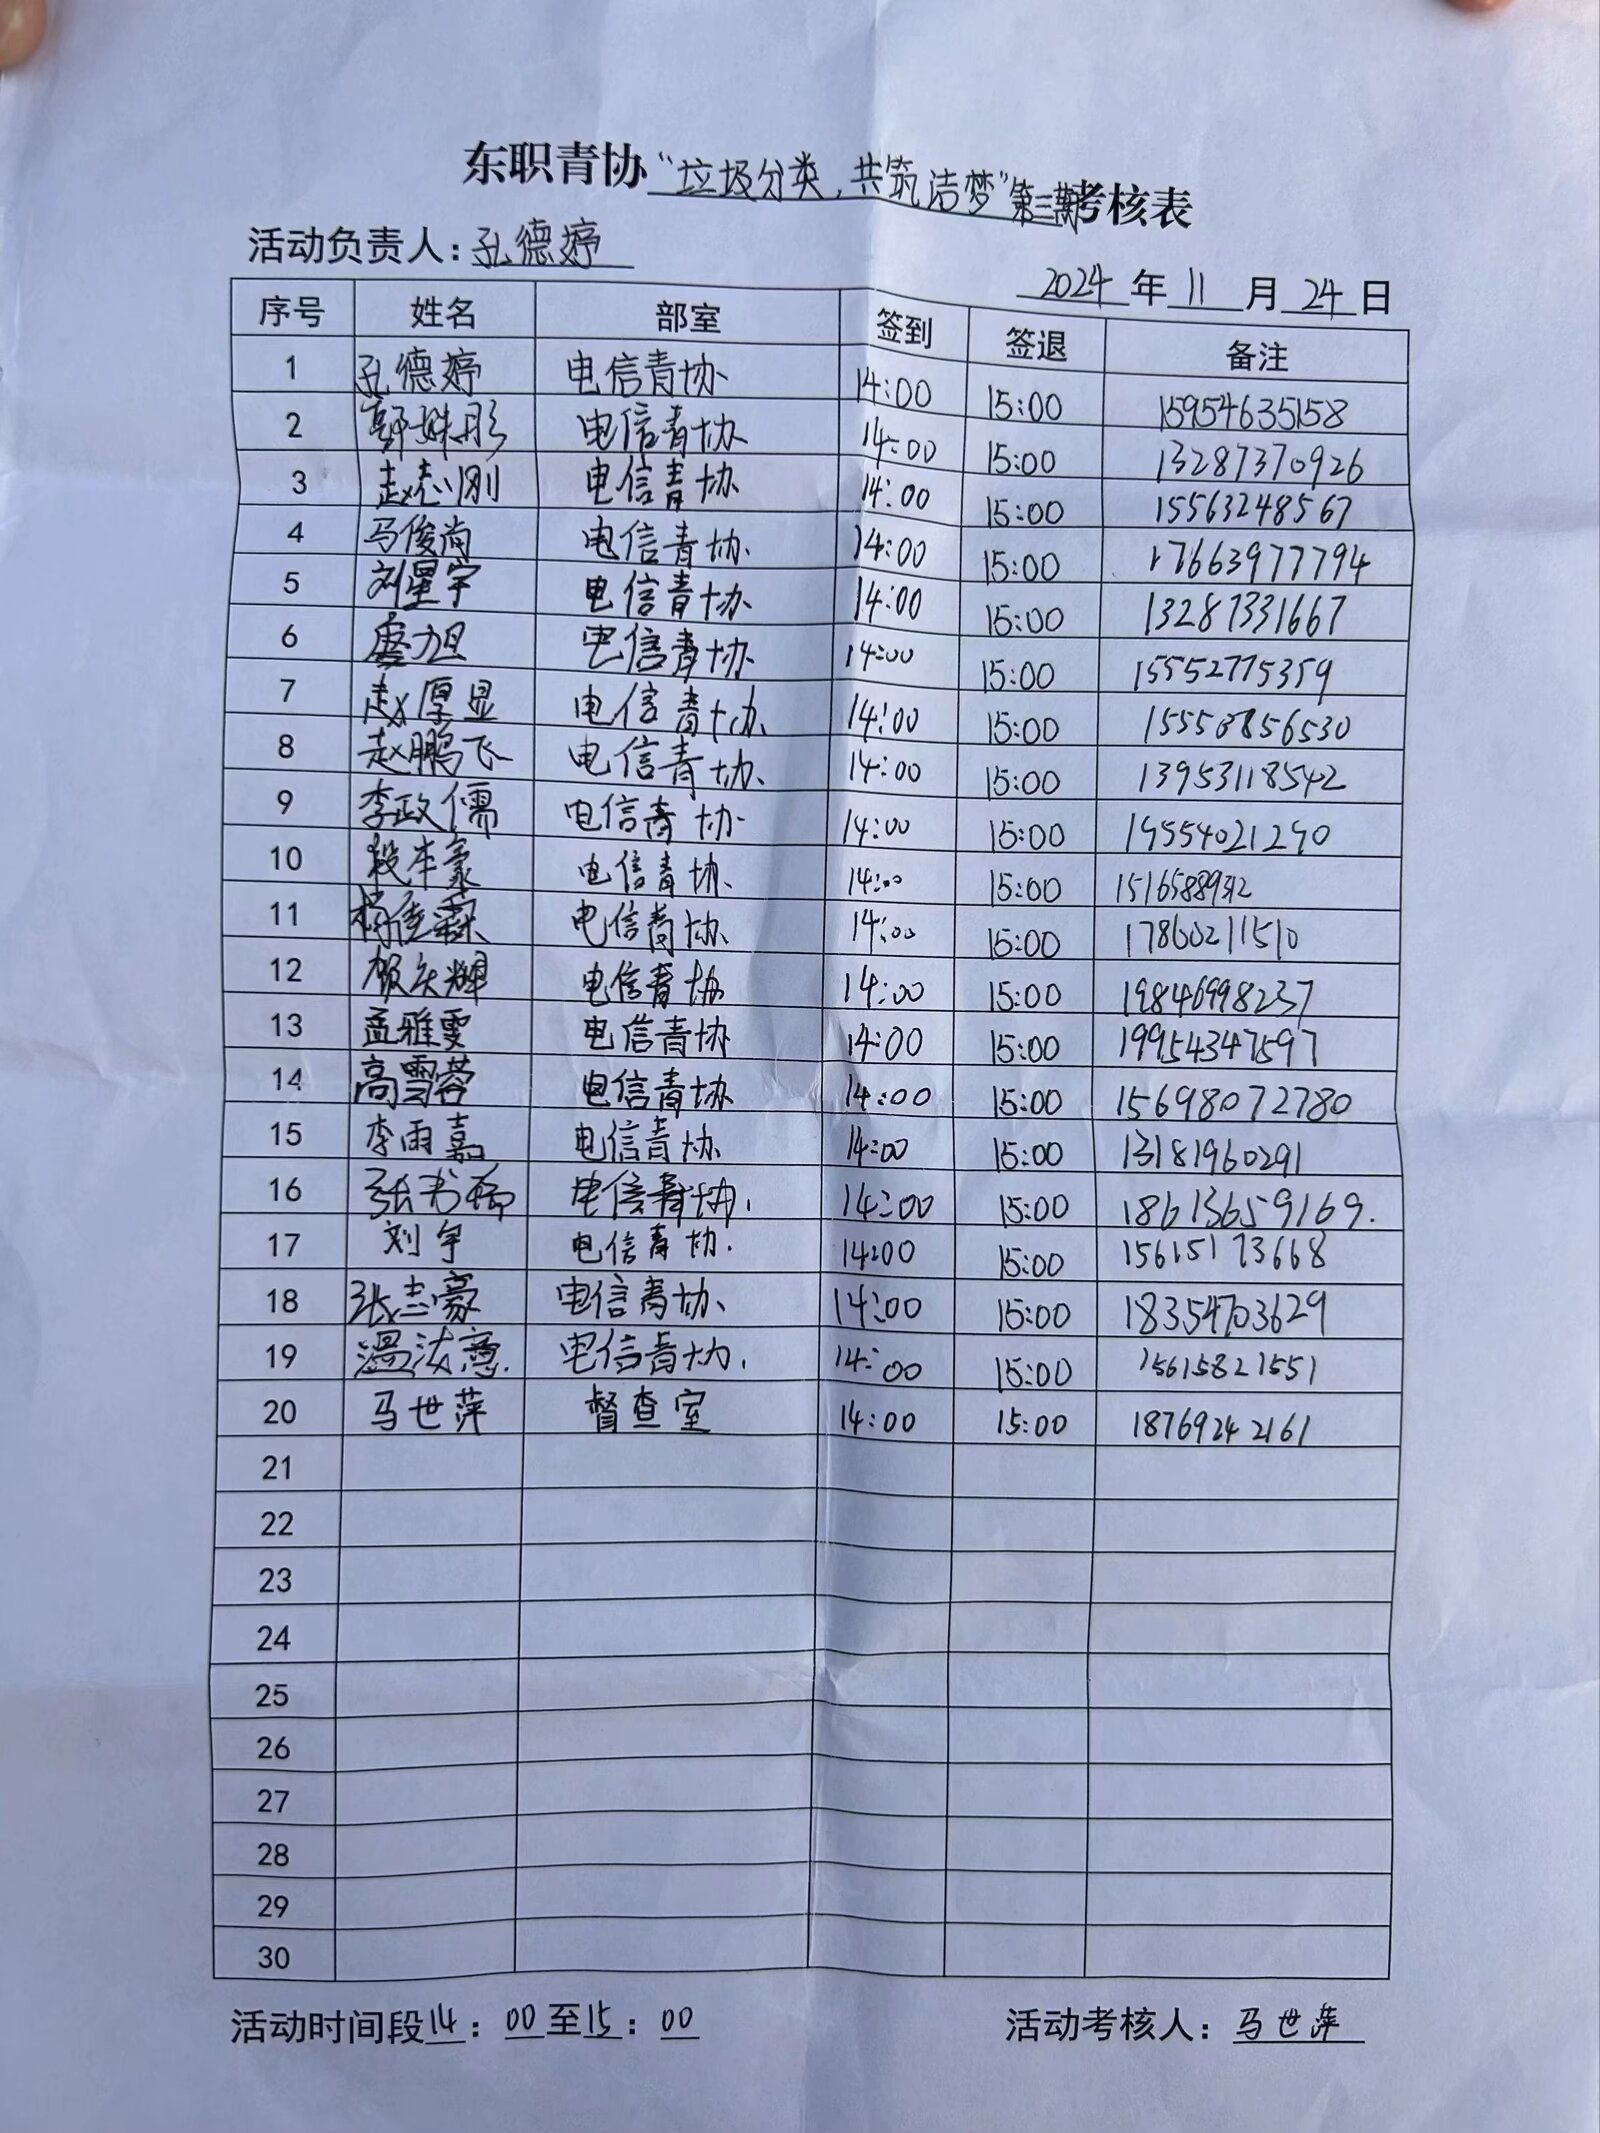 东职青协“垃圾分类,共筑洁梦”第三期考核表
活动负责人：孔德婷
2024年11月24日
序号 姓名 部室 签到 签退 备注
1 孔德婷 电信青协 14:00 15:00 15954635158
2 郭姝彤 电信青协 14:00 15:00 13287370926
3 赵志刚 电信青协 14:00 15:00 15563248567
4 马俊尚 电信青协 14:00 15:00 17663977794
5 刘星宇 电信青协 14:00 15:00 13287331667
6 唐旭 电信青协 14:00 15:00 15552775359
7 赵厚显 电信青协 14:00 15:00
8 赵鹏飞 电信青协 14:00 15:00 13953118542
9 李政儒 电信青协 14:00 15:00 19554021290
10 段本豪 电信青协 14:00 15:00
11 杨佳霖 电信青协 14:00 15:00 17860211510
12 贺庆辉 电信青协 14:00 15:00 19846998237
13 孟雅雯 电信青协 14:00 15:00 19954347597
14 高雪蓉 电信青协 14:00 15:00 15698072780
15 李雨嘉 电信青协 14:00 15:00 13181960291
16 张书 电信青协 14:00 15:00 186136659169.
17 刘宇 电信青协 14:00 15:00 15615173668
18 张志豪 电信青协 14:00 15:00 18354703629
19 温 电信青协 14:00 15:00 15615821551
20 马世萍 督查室 14:00 15:00 18769242161
21
22
23
24
25
26
27
28
29
30
活动时间段14：00至15：00 活动考核人：马世萍